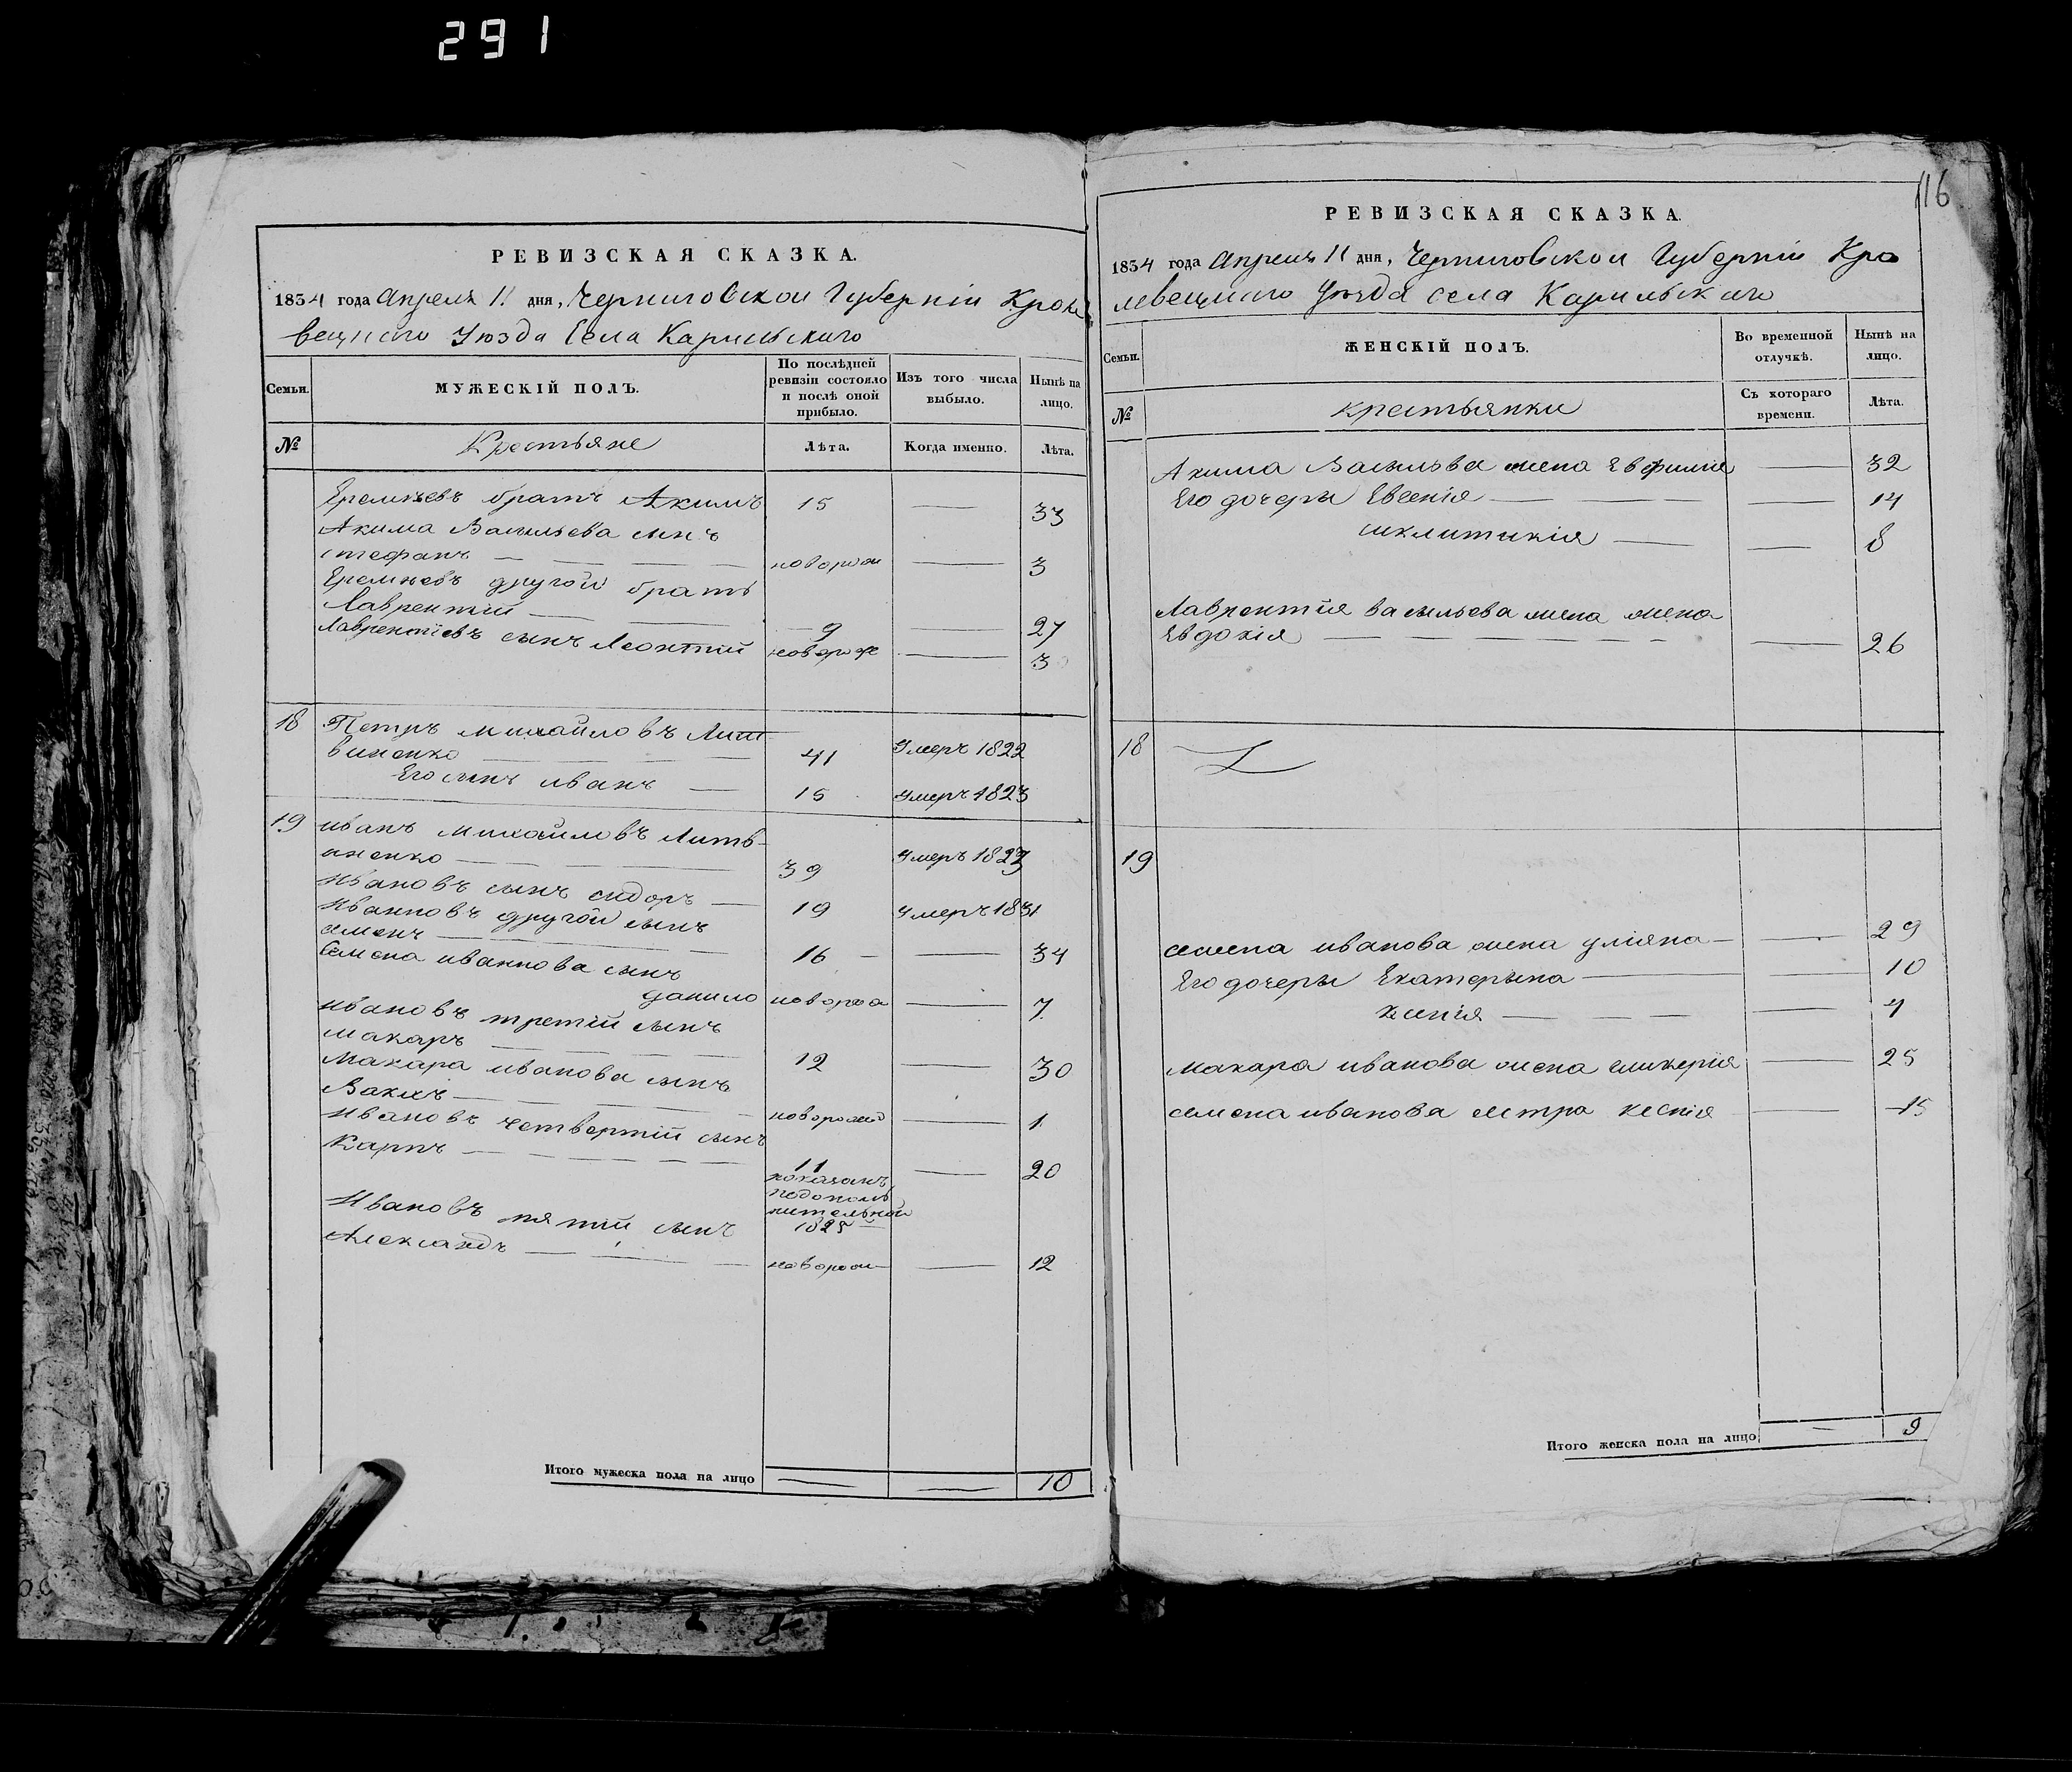 291
РЕВИЗСКАЯ СКАЗКА.
1834 года Апреля 11 дня, Черниговской Губерніи Кроле
вецкаго Уезда Села Карильскаго
Семьи.
МУЖЕСКІЙ ПОЛЪ.
По послѣдней ревизіи состояло и послѣ оной прибыло.
Изъ того числа выбыло.
Нынѣ на лицо.
№
Крестьяне
Лѣта.
Когда именно.
Лѣта.
Еремѣевъ братъ Акимъ 15 — 33
Акима Васильева сынъ
стефанъ — новорож — 3
Еремѣевъ другой братъ
Лаврентій — 9 — 27
Лаврентіевъ сынъ Леонтій новорож — 3
18 Петръ михайловъ Лит
виненко — 41 Умеръ 1822
Его сынъ иванъ — 15 умеръ 1823
19 иванъ михайловъ Литв
иненко — 39 умеръ 1823
Ивановъ сынъ сидоръ — 19 умеръ 1831
Ивановъ другой сынъ
семенъ — 16 — 34
Семена иванова сынъ
данило новорож — 7
ивановъ третій сынъ
макаръ — 12 — 30
Макара иванова сынъ
Вакхъ — новорожд — 1
Ивановъ четвертій сынъ
Карпъ — 11 — 20
показанъ
подополъ
нительной
1825
Ивановъ пятій сынъ
Александъ — новорож — 12
Итого мужеска пола на лицо — — 10
116
РЕВИЗСКАЯ СКАЗКА.
1834 года Апреля 11 дня, Черниговской Губерніи Кро
левецкаго Уезда села Карильскаго
Семьи.
ЖЕНСКІЙ ПОЛЪ.
Во временной отлучкѣ.
Нынѣ на лицо.
№
крестьянки
Съ котораго времени.
Лѣта.
Акима Васильева жена Евфимія — 32
Его дочеры Евгенія — 14
синклитикія — 8
Лаврентія васильева жена жена
Евдокія — 26
18
19
семена иванова жена уліяна — 29
Его дочеры Екатерына — 10
ксенія — 4
макара иванова жена гликерія — 25
семена иванова сестра ксенія — 15
Итого женска пола на лицо — 9